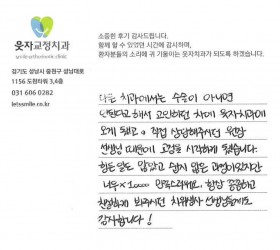 웃자교정치과
smile orthodontic clinic
경기도 성남시 중원구 성남대로
1156 도원타워 3,4층
031 606 0282
letssmile.co.kr
소중한 후기 감사드립니다.
함께 할 수 있었던 시간에 감사하며,
환자분들의 소리에 귀 기울이는 웃자치과가 되도록 하겠습니다.
다른 치과에서는 수술이 아니면
안된다고 해서 고민하던 차에 웃자치과에
오게 됐고 직접 상담해주시던 원장
선생님 때문에 교정을 시작하게 됐습니다.
힘든 일도 많았고 쉽지 않은 과정이었지만
너무×1000 만족스러워요. 항상 꼼꼼하고
친절하게 봐주시던 치위생사 선생님들께도
감사합니다!